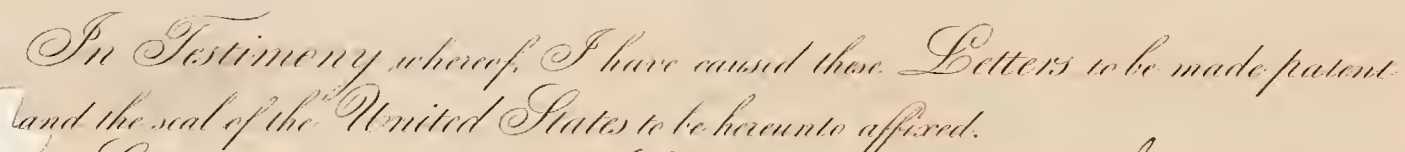 In Testimony whereof, I have caused these Letters to be made patent
and the seal of the United States to be hereunto affixed.